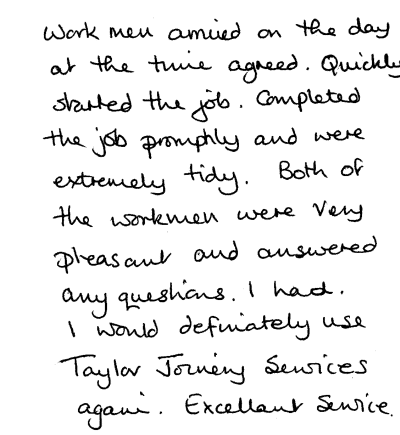 Work men arrived on the day
at the time agreed. Quickly
started the job. Completed
the job promptly and were
extremely tidy. Both of
the workmen were very
pleasant and answered
any questions. I had.
I would definately use
Taylor Joinery Services
again. Excellant Service.